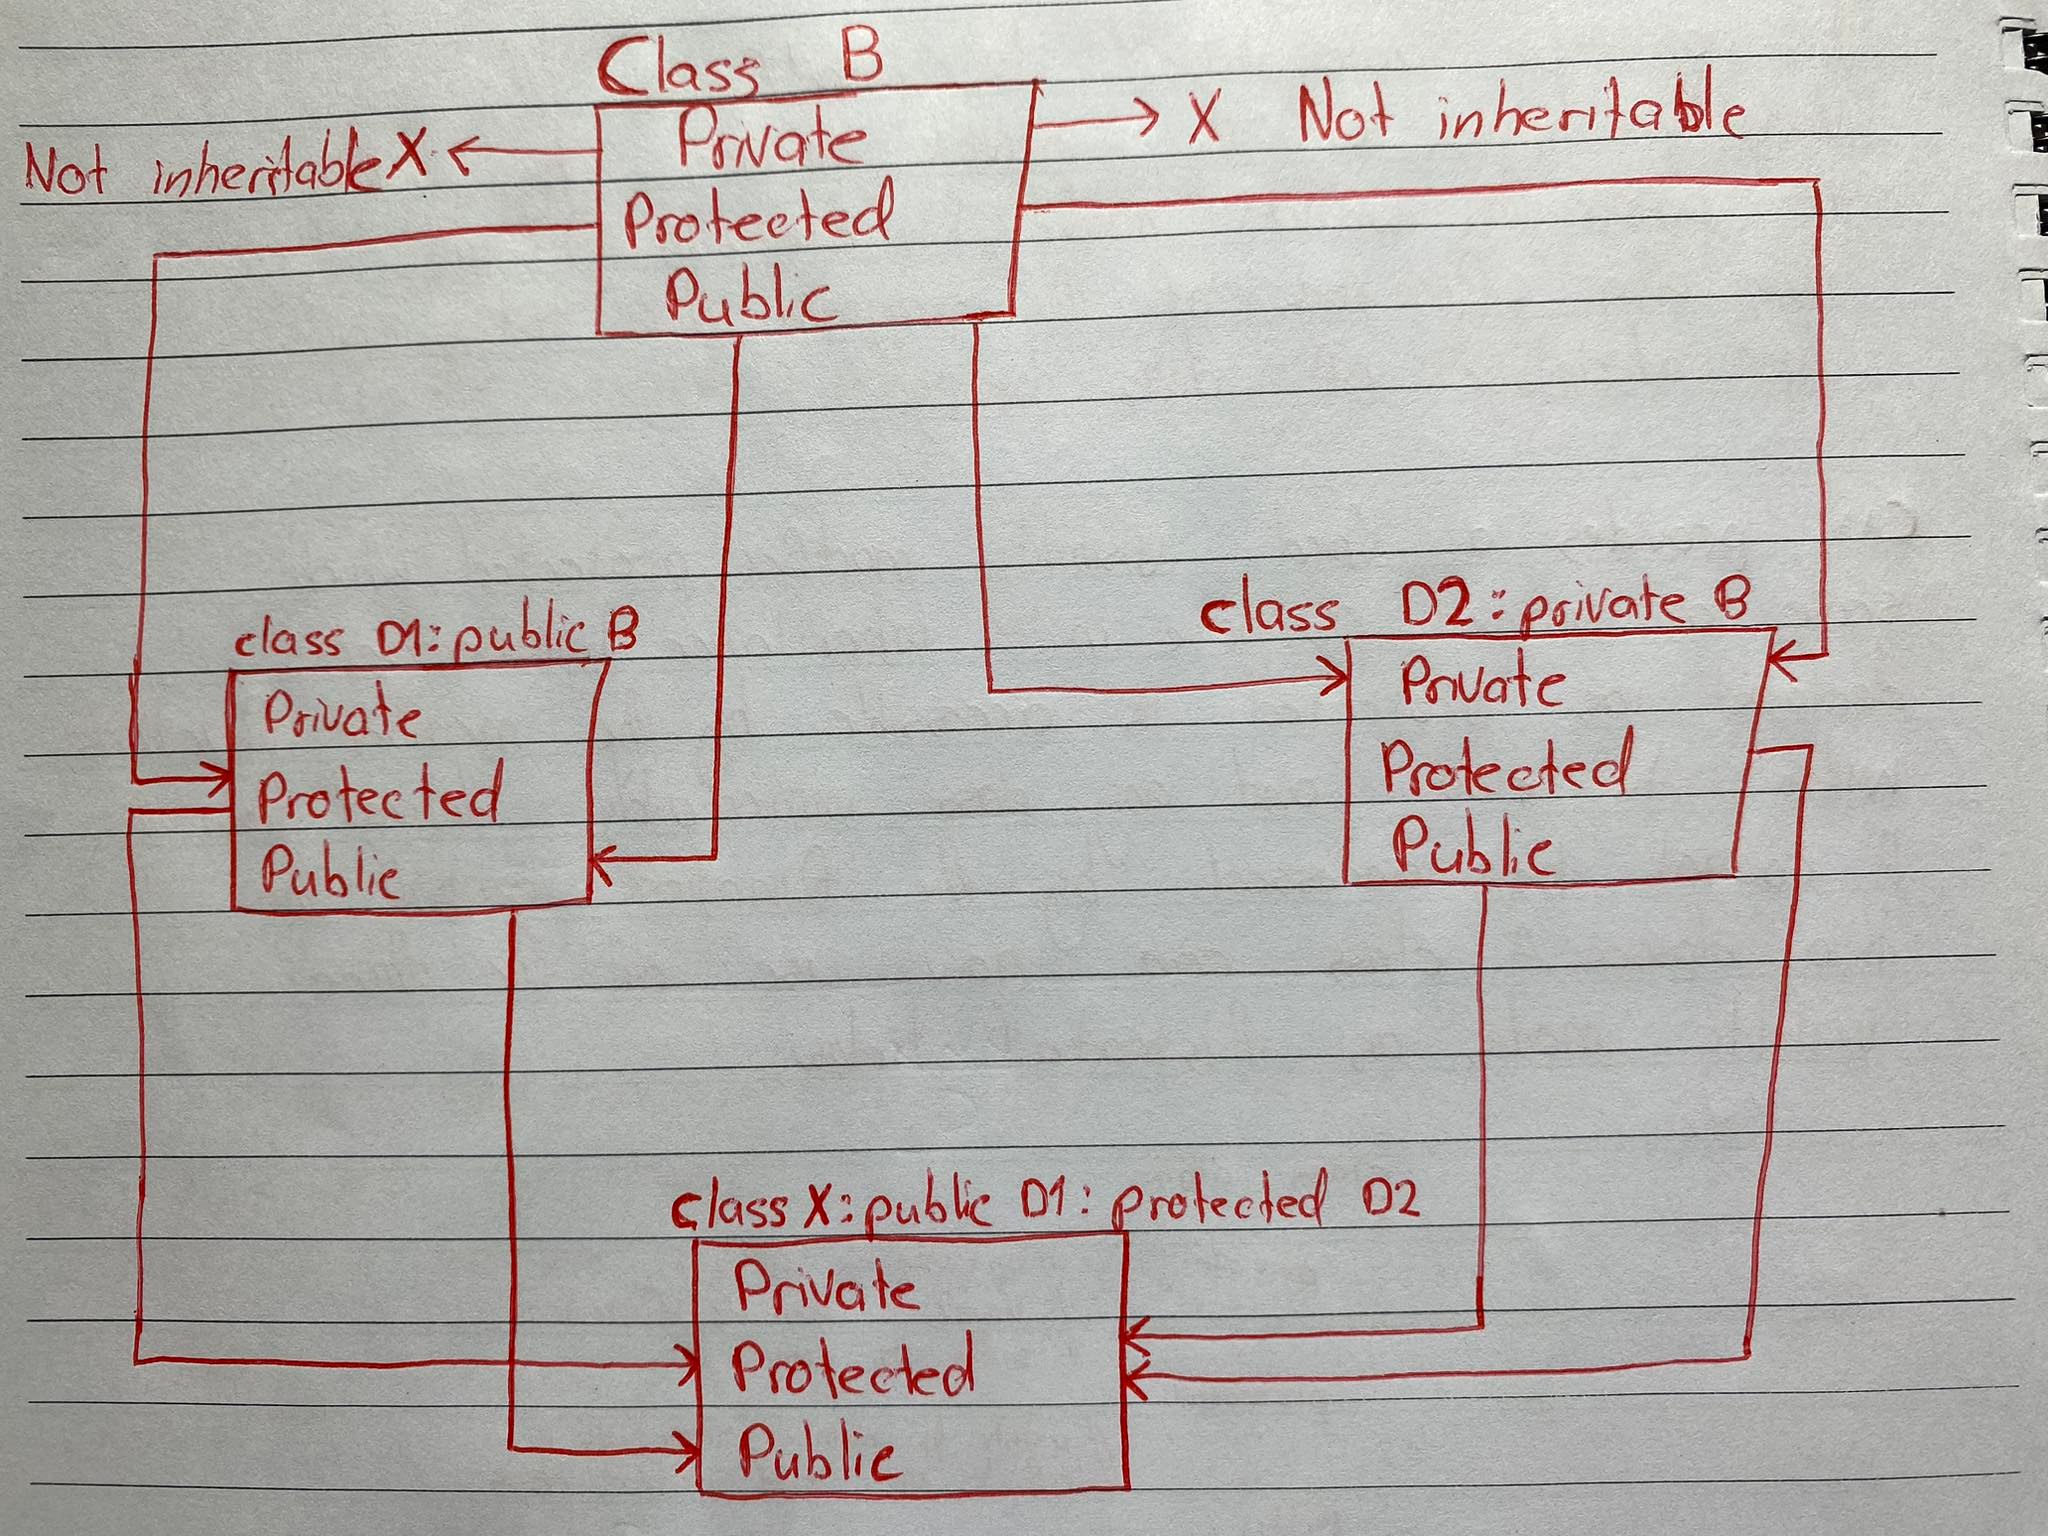 Class B
Private
Protected
Public
Not inheritable X
X Not inheritable
class D1: public B
Private
Protected
Public
class D2: private B
Private
Protected
Public
class X: public D1: protected D2
Private
Protected
Public